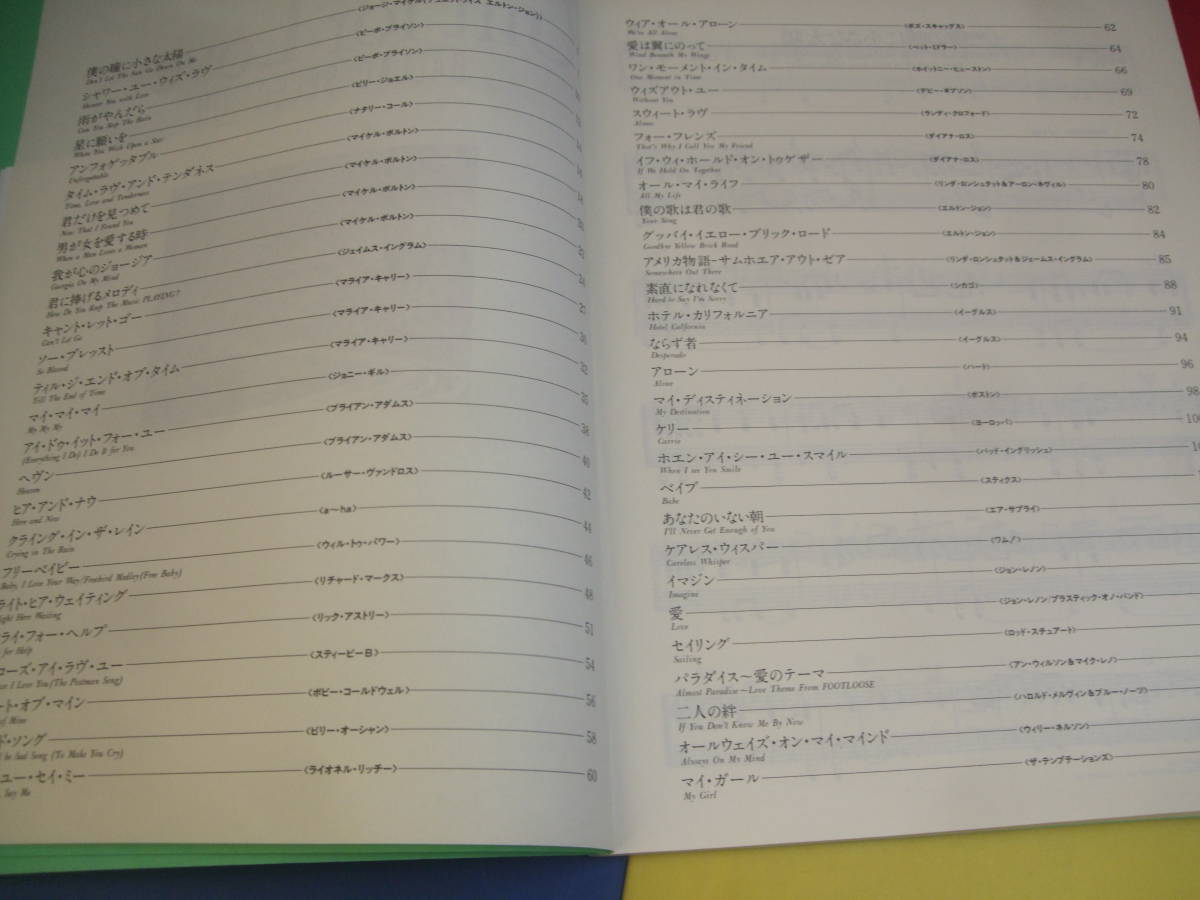 僕の瞳に小さな太陽
Don't Let The Sun Go Down On Me
シャワー・ユー・ウィズ・ラヴ 〈ピーボ・ブライソン〉
Shower You with Love
雨がやんだら 〈ピーボ・ブライソン〉
Can You Stop The Rain
星に願いを 〈ビリー・ジョエル〉
When You Wish Upon a Star
アンフォゲッタブル 〈ナタリー・コール〉
Unforgettable
タイム・ラヴ・アンド・テンダネス 〈マイケル・ボルトン〉
Time, Love and Tenderness
君だけを見つめて 〈マイケル・ボルトン〉
Now That I Found You
男が女を愛する時 〈マイケル・ボルトン〉
When a Man Loves a Woman
我が心のジョージア 〈マイケル・ボルトン〉
Georgia On My Mind
君に捧げるメロディ 〈ジェイムス・イングラム〉
How Do You Keep The Music PLAYING?
キャント・レット・ゴー 〈マライア・キャリー〉
Can't Let Go
ソー・ブレッスト 〈マライア・キャリー〉
So Blessed
ティル・ジ・エンド・オブ・タイム 〈マライア・キャリー〉
Till The End of Time
マイ・マイ・マイ 〈ジョニー・ギル〉 35
My My My
アイ・ドゥ・イット・フォー・ユー 〈ブライアン・アダムス〉 38
(Everything I Do) I Do It for You
ヘヴン 〈ブライアン・アダムス〉 40
Heaven
ヒア・アンド・ナウ 〈ルーサー・ヴァンドロス〉 42
Here and Now
クライング・イン・ザ・レイン 〈a〜ha〉 44
Crying in The Rain
フリーベイビー 〈ウィル・トゥ・パワー〉 46
Baby, I Love Your Way/Freebird Medley(Free Baby)
ライト・ヒア・ウェイティング 〈リチャード・マークス〉 48
ight Here Waiting
ライ・フォー・ヘルプ 〈リック・アストリー〉 51
for Help
コーズ・アイ・ラヴ・ユー 〈スティービーB〉 54
I Love You(The Postman Song)
ート・オブ・マイン 〈ボビー・コールドウェル〉 56
of Mine
ド・ソング 〈ビリー・オーシャン〉 58
be Sad Song (To Make You Cry)
ユー・セイ・ミー 〈ライオネル・リッチー〉 60
Say Me
ウィア・オール・アローン 〈ボズ・スキャッグス〉 62
We're All Alone
愛は翼にのって 〈ベット・ミドラー〉 64
Wind Beneath My Wings
ワン・モーメント・イン・タイム 〈ホイットニー・ヒューストン〉 66
One Moment in Time
ウィズアウト・ユー 〈デビー・ギブソン〉 69
Without You
スウィート・ラヴ 〈ランディ・クロフォード〉 72
フォー・フレンズ 〈ダイアナ・ロス〉 74
That's Why I Call You My Friend
イフ・ウィ・ホールド・オン・トゥゲザー 〈ダイアナ・ロス〉 78
If We Hold On Together
オール・マイ・ライフ 〈リンダ・ロンシュタット&アーロン・ネヴィル〉 80
All My Life
僕の歌は君の歌 〈エルトン・ジョン〉 82
Your Song
グッバイ・イエロー・ブリック・ロード 〈エルトン・ジョン〉 84
Goodbye Yellow Brick Road
アメリカ物語−サムホエア・アウト・ゼア 〈リンダ・ロンシュタット&ジェームス・イングラム〉 85
Somewhere Out There
素直になれなくて 〈シカゴ〉 88
Hard to Say I'm Sorry
ホテル・カリフォルニア 〈イーグルス〉 91
Hotel California
ならず者 〈イーグルス〉 94
Desperado
アローン 〈ハート〉 96
Alone
マイ・ディスティネーション 〈ボストン〉 98
My Destination
ケリー 〈ヨーロッパ〉
Carrie
ホエン・アイ・シー・ユー・スマイル 〈バッド・イングリッシュ〉
When I see You Smile
ベイブ 〈スティクス〉
Babe
あなたのいない朝 〈エア・サプライ〉
I'll Never Get Enough of You
ケアレス・ウィスパー 〈ワム!〉
Careless Whisper
イマジン 〈ジョン・レノン〉
Imagine
愛 〈ジョン・レノン/プラスティック・オノ・バンド〉
Love
セイリング 〈ロッド・スチュアート〉
Sailing
パラダイス〜愛のテーマ 〈アン・ウィルソン&マイク・レノ〉
Almost Paradise〜Love Theme From FOOTLOOSE
二人の絆 〈ハロルド・メルヴィン&ブルー・ノーツ〉
If You Don't Know Me By Now
オールウェイズ・オン・マイ・マインド 〈ウィリー・ネルソン〉
Always On My Mind
マイ・ガール 〈ザ・テンプテーションズ〉
My Girl